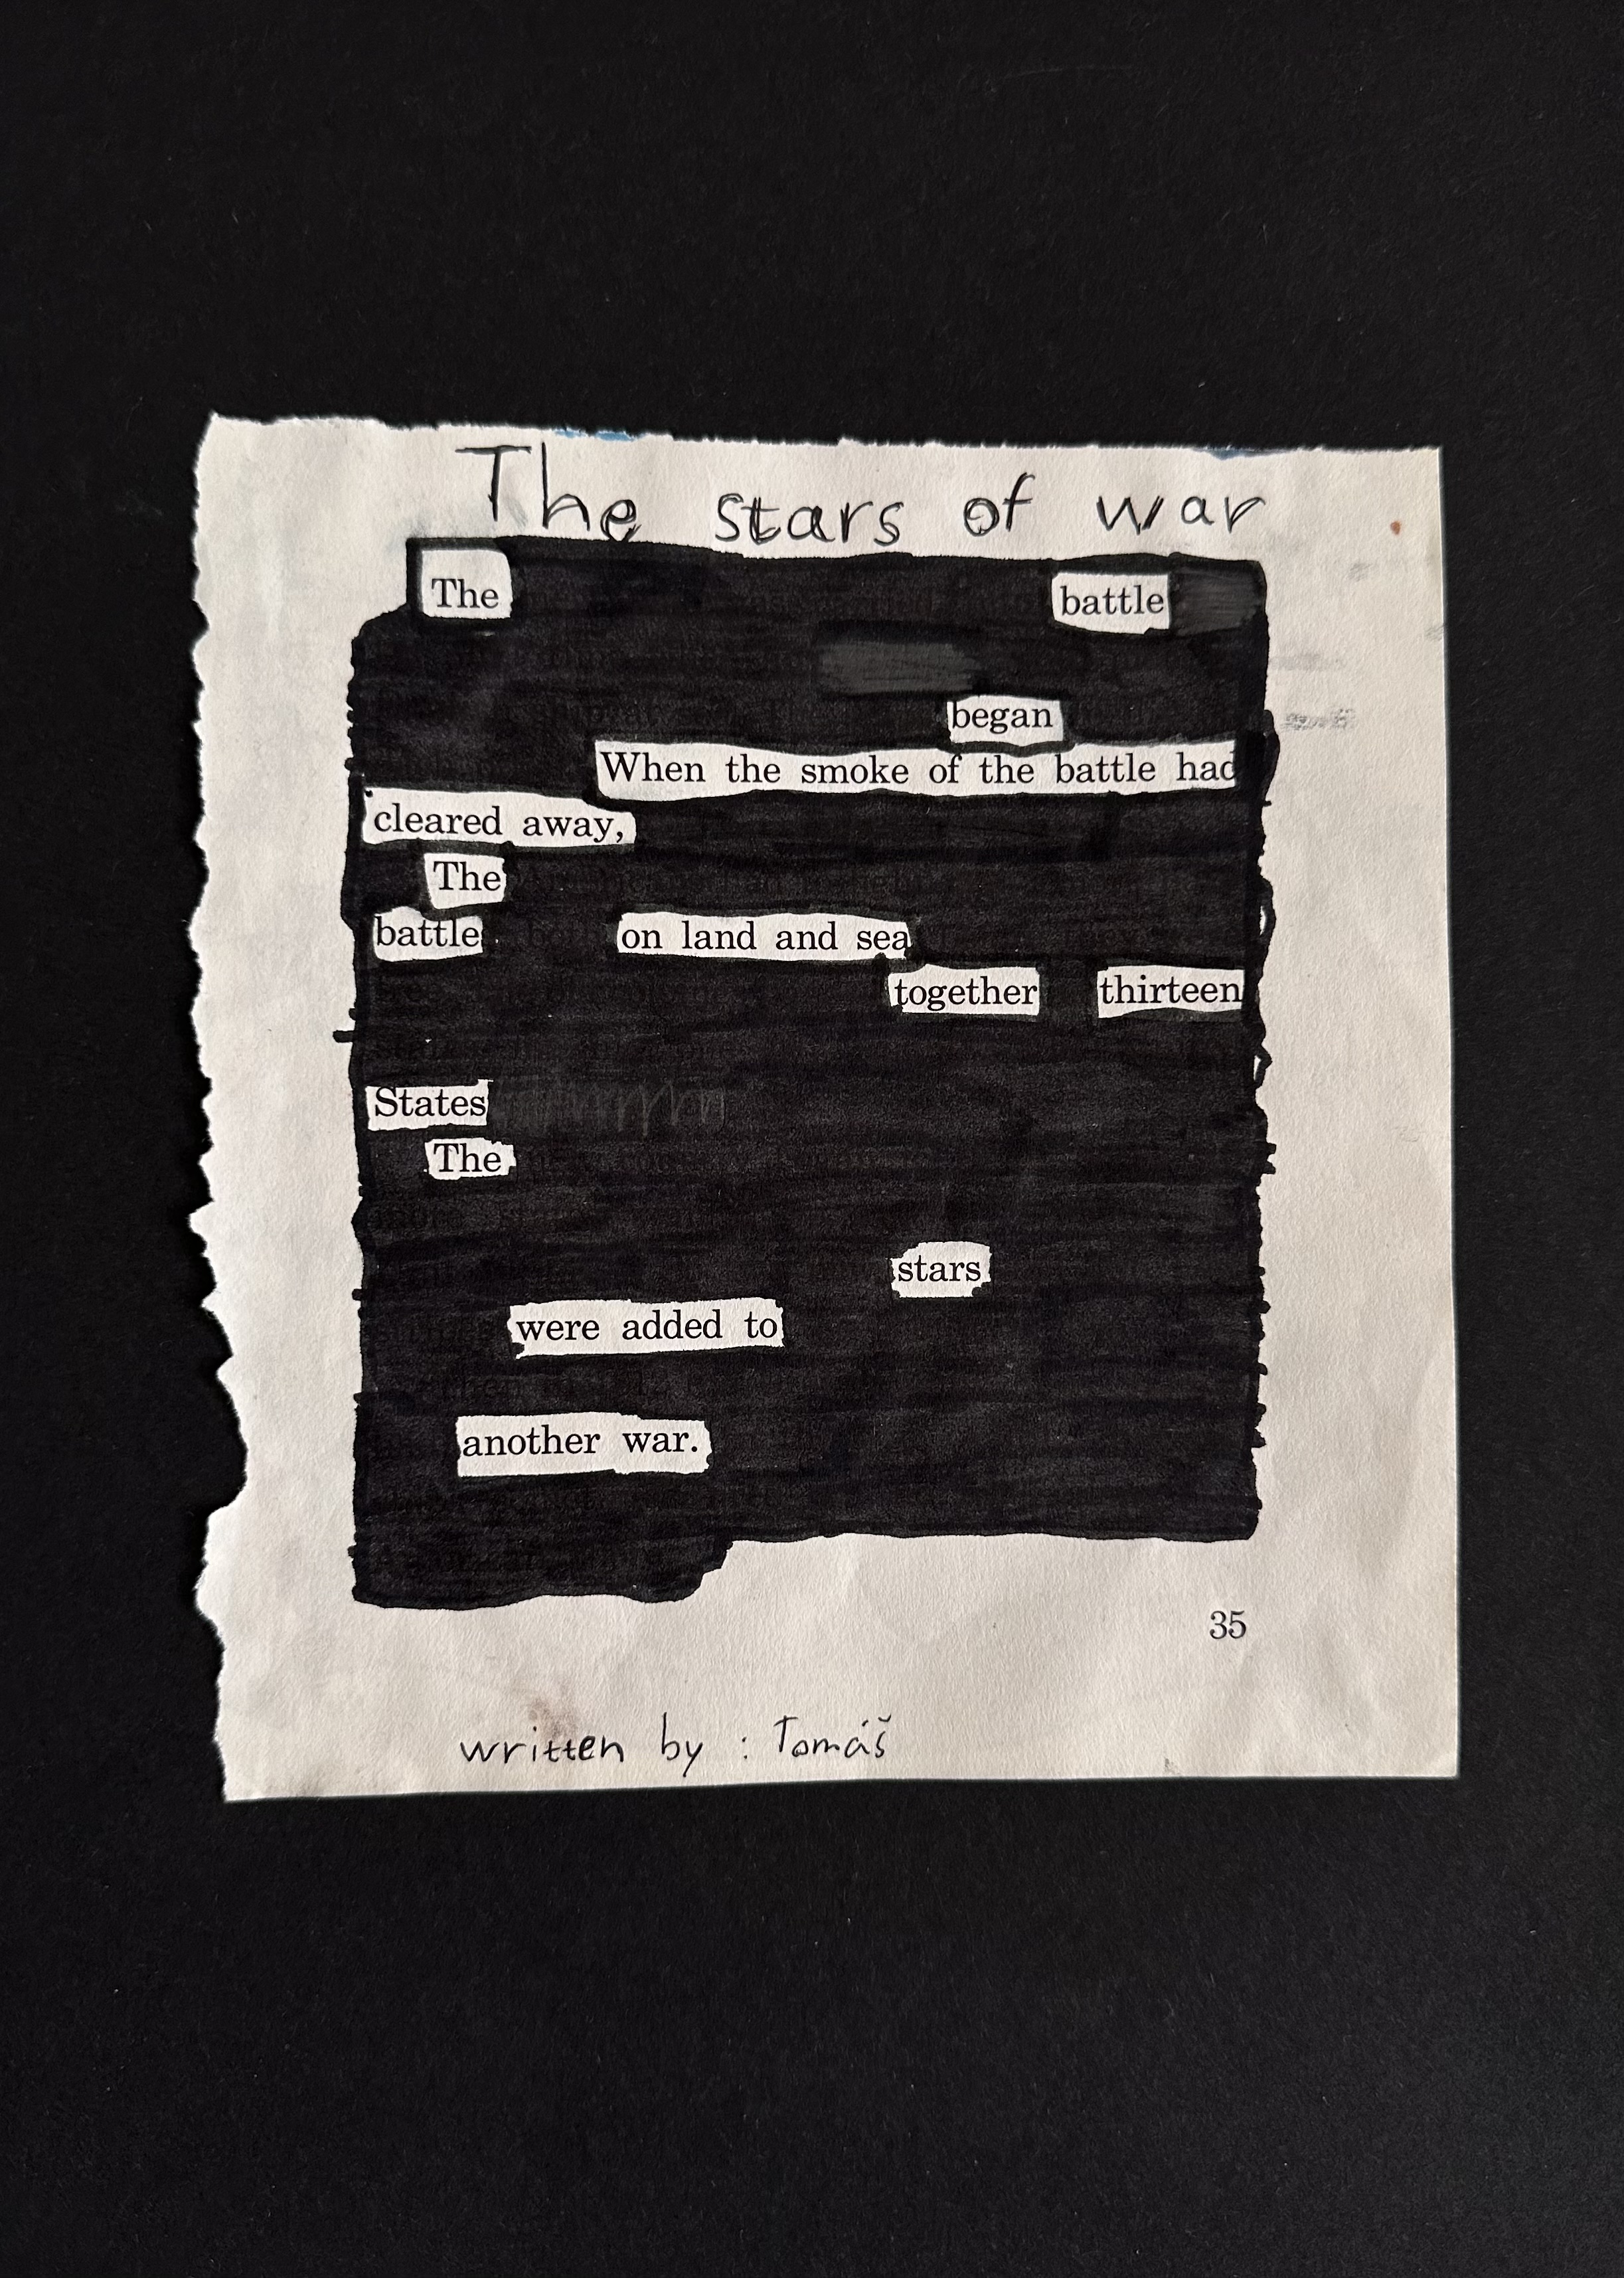 The stars of war
The battle
began
When the smoke of the battle had
cleared away,
The
battle on land and sea
together thirteen
States
The
stars
were added to
another war.
35
written by : Tomáš